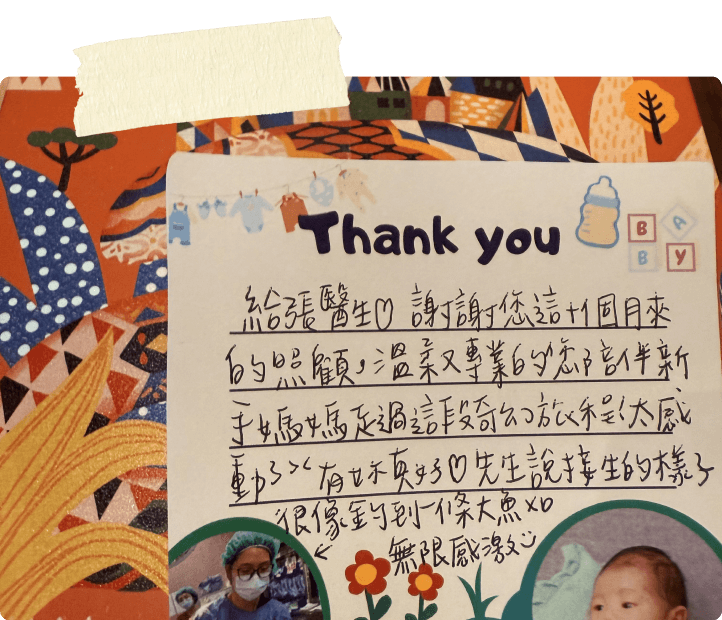 Thank you
B A
B Y
給張醫生♡ 謝謝您這十個月來
的照顧，溫柔又專業的您陪伴新
手媽媽走過這段奇幻旅程！太感
動了>< 有妳真好♡先生說接生的樣子
很像釣到一條大魚XD
無限感激